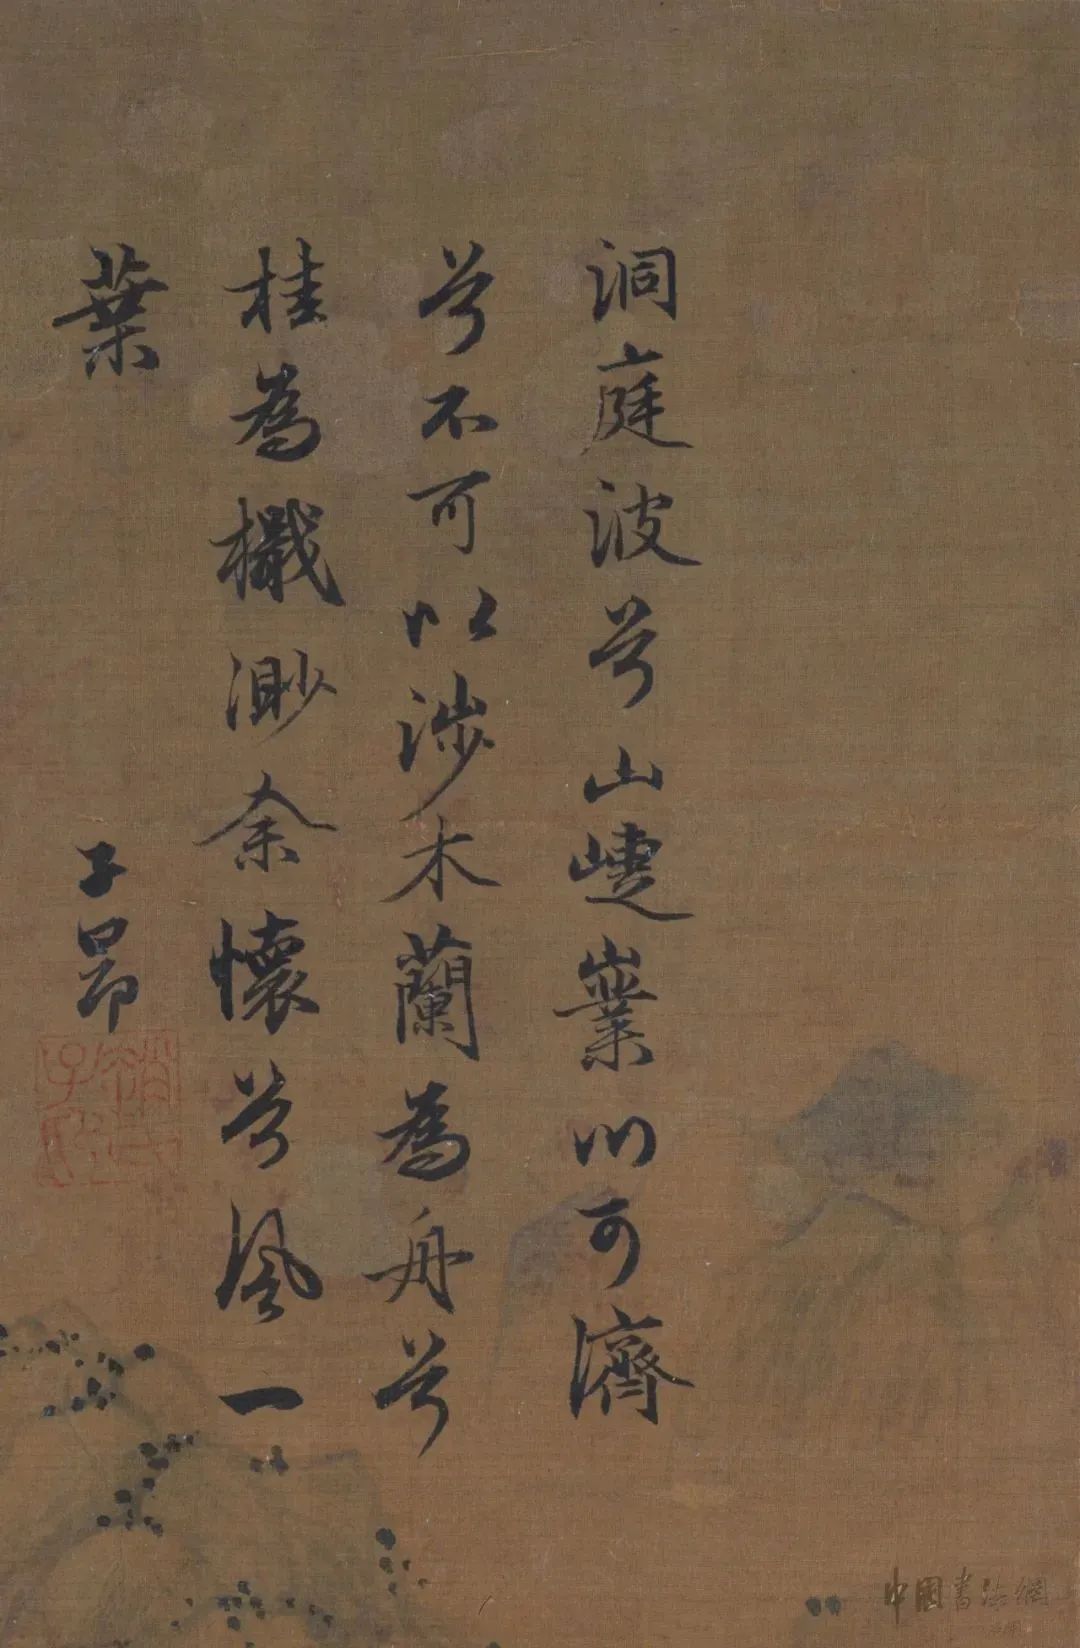 洞庭波兮山崨嶪川可濟
兮不可以涉木蘭為舟兮
桂為檝渺余懷兮風一
葉
子昂
趙氏子昂
中國書法網